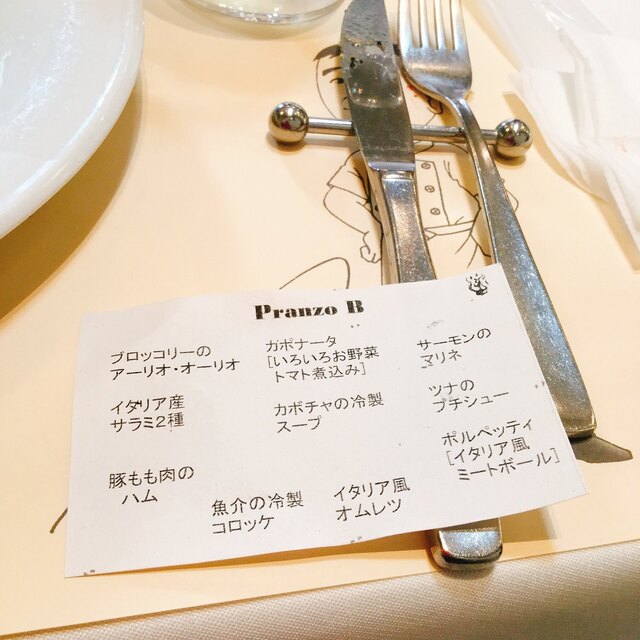 Pranzo B
ブロッコリーの
アーリオ・オーリオ
ガポナータ
[いろいろお野菜
トマト煮込み]
サーモンの
マリネ
イタリア産
サラミ2種
カボチャの冷製
スープ
ツナの
プチシュー
豚もも肉の
ハム
魚介の冷製
コロッケ
イタリア風
オムレツ
ポルペッティ
[イタリア風
ミートボール]